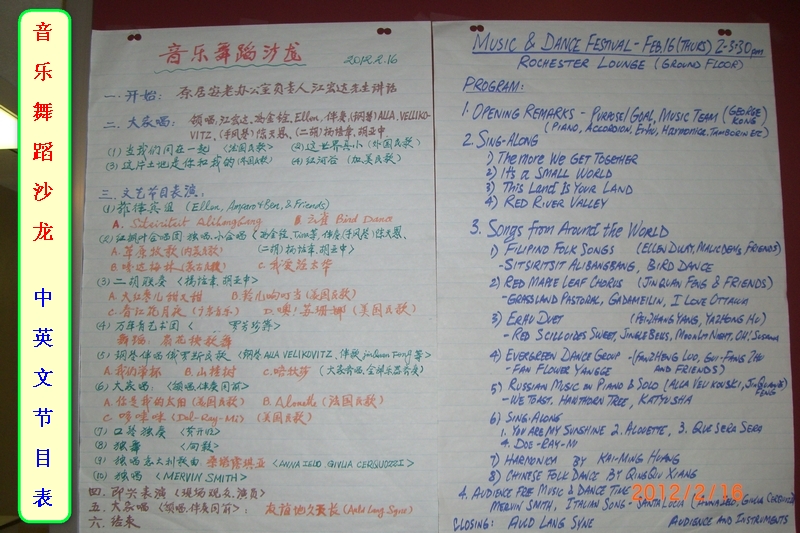 音乐舞蹈沙龙
中英文节目表
音乐舞蹈沙龙 2012.2.16
一.开始: 原居安老办公室负责人江宏达先生讲话
二.大家唱: 领唱,江宏达,冯金铨,Ellen,伴奏,(钢琴)ALLA.VELLIKO-
VITZ,(手风琴)陈天恩,(二胡)杨培章,胡亚中
(1)当我们同在一起 <法国民歌> (2)这世界真小(外国民歌)
(3)这片土地是你和我的(外国民歌) (4)红河谷(加美民歌)
三.文艺节目表演:
(1)菲律宾组(Ellen, Amparo+Ben, & Friends)
A. Sitsiritsit Alibangbang B. Bird Dance
(2)红枫叶合唱团 独唱,小合唱
A.草原牧歌 (二胡)杨培章,胡亚中)
B.嘎达梅林(蒙古民歌) C.我爱渥太华
(3)二胡联奏 <杨培章,胡亚中>
A.大红枣儿甜又甜 B.铃儿响叮当(美国民歌)
C.春江花月夜 D.噢!苏珊娜(美国民歌)
(4)万年青艺术团
舞蹈:
(5)钢琴伴唱俄罗斯民歌 (钢琴ALLA VELIKOVITZ,
A.我们举杯 B.山楂树 C.喀秋莎
(6)大家唱: <领唱,伴奏同前>
A.你是我的太阳(美国民歌) B.Alouette(法国民歌)
C.哆来咪(Dol-Ray-Mi) (美国民歌)
(7)口琴独奏
(8)独舞 <向毅>
(9)独唱意大利歌曲.桑塔露琪亚 <ANNA IELO, GIVLIA CERQUOZZI>
(10)独唱 <MERVIN SMITH>
四.即兴表演 <现场观众,演员>
五.大家唱 <领唱,伴奏同前>: 友谊地久天长(Auld Lang Syne)
六.结束
MUSIC & DANCE FESTIVAL - FEB.16 (THURS) 2-3:30pm
ROCHESTER LOUNGE (GROUND FLOOR)
PROGRAM:
1. OPENING REMARKS - PURPOSE/GOAL, MUSIC TEAM (GEORGE KONG)
(PIANO, ACCORDION, ERHU, HARMONICA, TAMBORIN ETC)
2. SING-ALONG
1) THE MORE WE GET TOGETHER
2) IT'S A SMALL WORLD
3) THIS LAND IS YOUR LAND
4) RED RIVER VALLEY
3. SONGS FROM AROUND THE WORLD
1) FILIPINO FOLK SONGS (ELLEN DULAY, FRIENDS)
- SITSIRITSIT ALIBANGBANG, BIRD DANCE
2) RED MAPLE LEAF CHORUS (JINQUAN FENG & FRIENDS)
- GRASSLAND PASTORAL, GADAMEILIN, I LOVE OTTAWA
3) ERHU DUET (PEIZHANG YANG, YAZHONG HU)
- RED SCILLOIDES SWEET, JINGLE BELLS, MOONLIT NIGHT, OH! SUSANNA
4) EVERGREEN DANCE GROUP - (FANZHENG LUO, GUI-FANG ZHU
- FAN FLOWER YANGGE AND FRIENDS)
5) RUSSIAN MUSIC ON PIANO & SOLO (ALLA VELIKOVSKI, JINQUAN FENG)
- WE TOAST, HANTHORN TREE, KATYUSHA
6) SING-ALONG
1. YOU ARE MY SUNSHINE 2. ALOUETTE, 3. QUE SERA SERA
4. DOE-RAY-MI
7) HARMONICA BY KAI-MING HUANG
8) CHINESE FOLK DANCE BY QINGQIU XIANG
4. AUDIENCE FREE MUSIC & DANCE TIME
MERVIN SMITH, ITALIAN SONG - SANTA LUCIA (ANNA IELO, GIULIA CERQUOZZI)
CLOSING: AULD LANG SYNE AUDIENCE AND INSTRUMENTS
2012/2/16